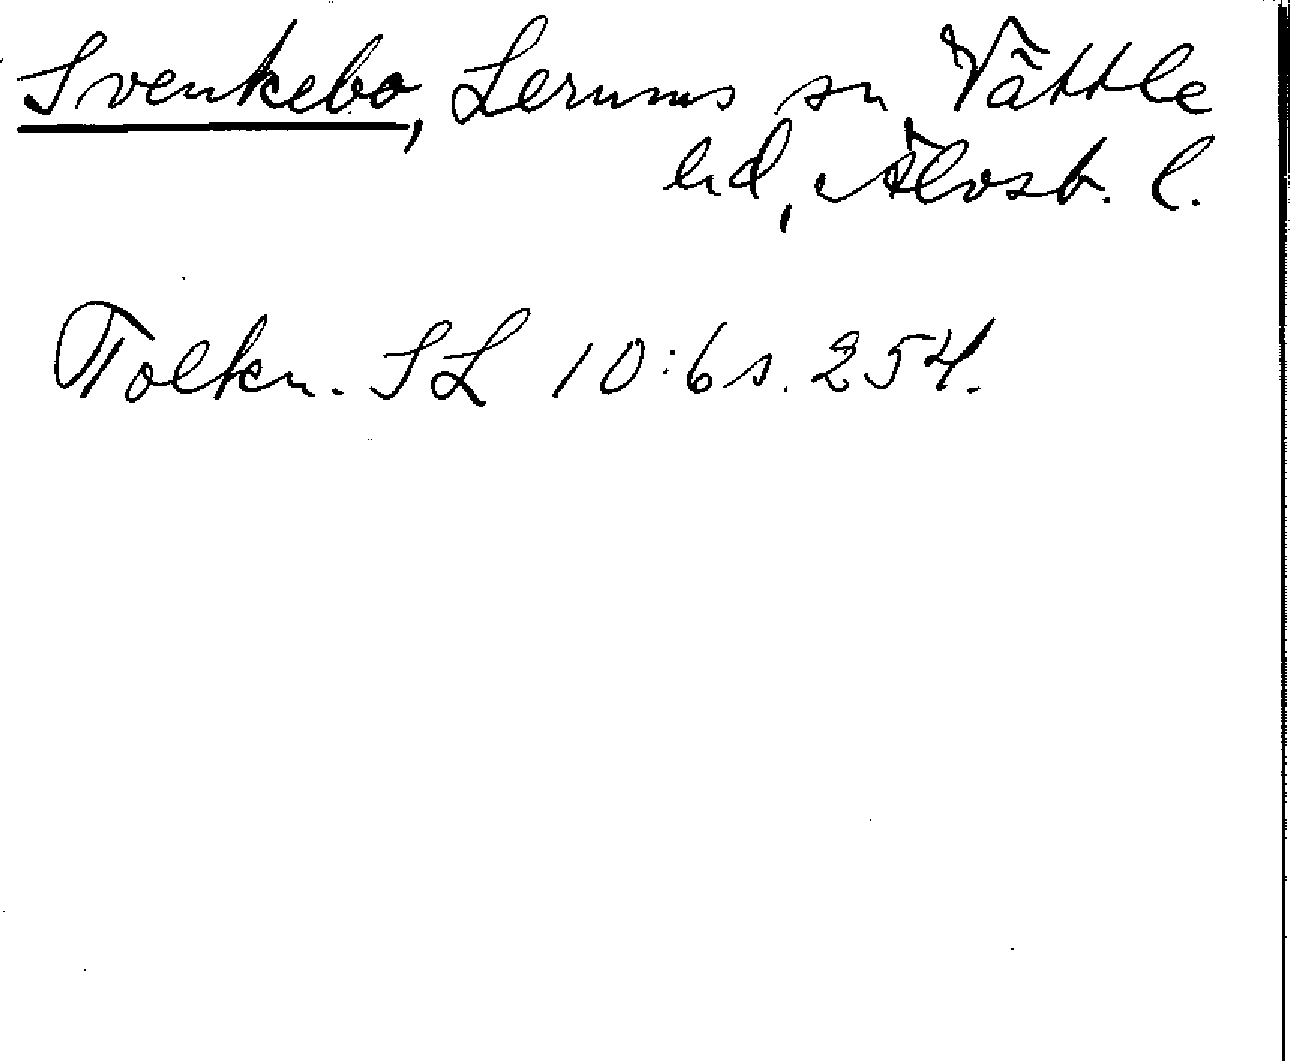 Svenkebo, Lerums sn Vättle
hd, Älvsb. l.
Tolkn. SL 10:6 s. 254.